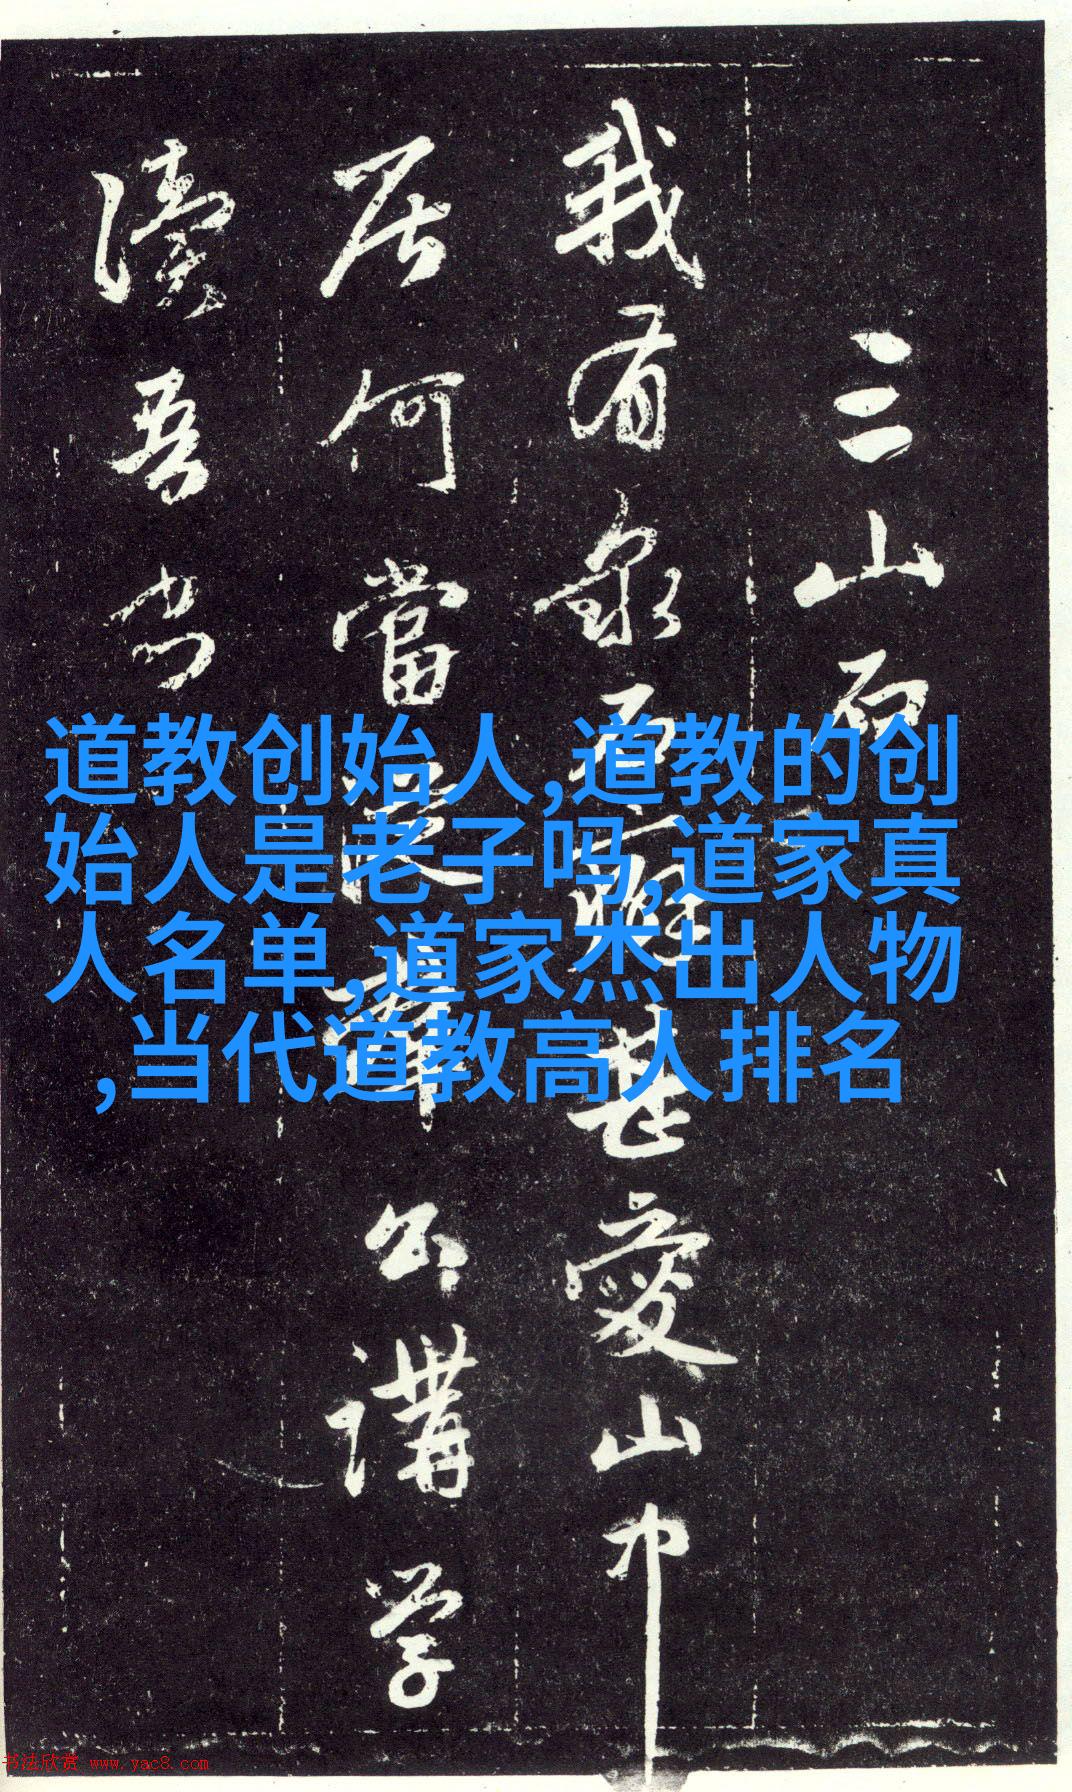 三山石
我有泉石癖甚愛山中
居何當公講学
讀吾书
道教创始人,道教的创
始人是老子吗,道家真
人名单,道家杰出人物
,当代道教高人排名
书法欣赏 www.yac8.com